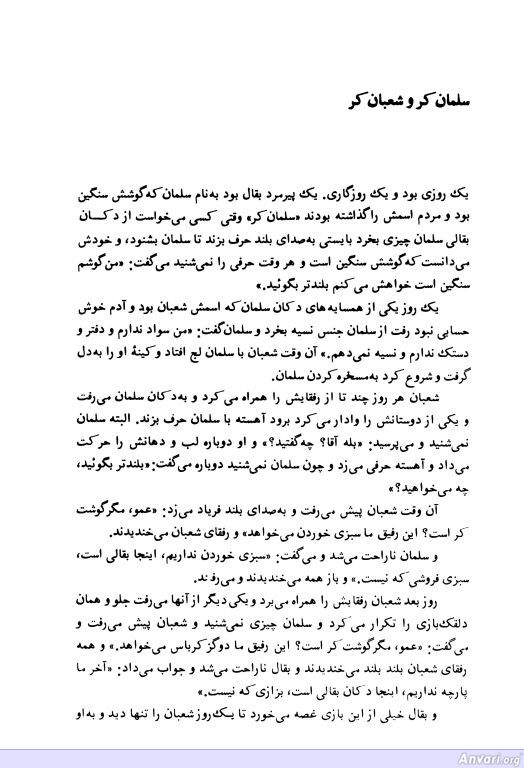 سلمان کر و شعبان کر
یک روزی بود و یک روزگاری. یک پیرمرد بقال بود به‌نام سلمان که گوشش سنگین
بود و مردم اسمش را گذاشته بودند «سلمان کر» وقتی کسی می‌خواست از دکان
بقالی سلمان چیزی بخرد بایستی به‌صدای بلند حرف بزند تا سلمان بشنود، و خودش
می‌دانست که گوشش سنگین است و هر وقت حرفی را نمی‌شنید می‌گفت: «من گوشم
سنگین است خواهش می‌کنم بلندتر بگوئید.»
یک روز یکی از همسایه‌های دکان سلمان که اسمش شعبان بود و آدم خوش
حسابی نبود رفت از سلمان جنس نسیه بخرد و سلمان گفت: «من سواد ندارم و دفتر و
دستک ندارم و نسیه نمی‌دهم.» آن وقت شعبان با سلمان لج افتاد و کینهٔ او را به‌دل
گرفت و شروع کرد به‌مسخره کردن سلمان.
شعبان هر روز چند تا از رفقایش را همراه می‌کرد و به‌دکان سلمان می‌رفت
و یکی از دوستانش را وادار می‌کرد برود آهسته با سلمان حرف بزند. البته سلمان
نمی‌شنید و می‌پرسید: «بله آقا؟ چه گفتید؟» و او دوباره لب و دهانش را حرکت
می‌داد و آهسته حرفی می‌زد و چون سلمان نمی‌شنید دوباره می‌گفت: «بلندتر بگوئید،
چه می‌خواهید؟»
آن وقت شعبان پیش می‌رفت و به‌صدای بلند فریاد می‌زد: «عمو، مگر گوشت
کر است؟ این رفیق ما سبزی خوردن می‌خواهد» و رفقای شعبان می‌خندیدند.
و سلمان ناراحت می‌شد و می‌گفت: «سبزی خوردن نداریم، اینجا بقالی است،
سبزی فروشی که نیست.» و باز همه می‌خندیدند و می‌رفتند.
روز بعد شعبان رفقایش را همراه می‌برد و یکی دیگر از آنها می‌رفت جلو و همان
دلقک‌بازی را تکرار می‌کرد و سلمان چیزی نمی‌شنید و شعبان پیش می‌رفت و
می‌گفت: «عمو، مگر گوشت کر است؟ این رفیق ما دو گز کرباس می‌خواهد.» و همه
رفقای شعبان بلند بلند می‌خندیدند و بقال ناراحت می‌شد و جواب می‌داد: «آخر ما
پارچه نداریم، اینجا دکان بقالی است، بزازی که نیست.»
و بقال خیلی از این بازی غصه می‌خورد تا یک روز شعبان را تنها دید و به‌او
Anvari.org